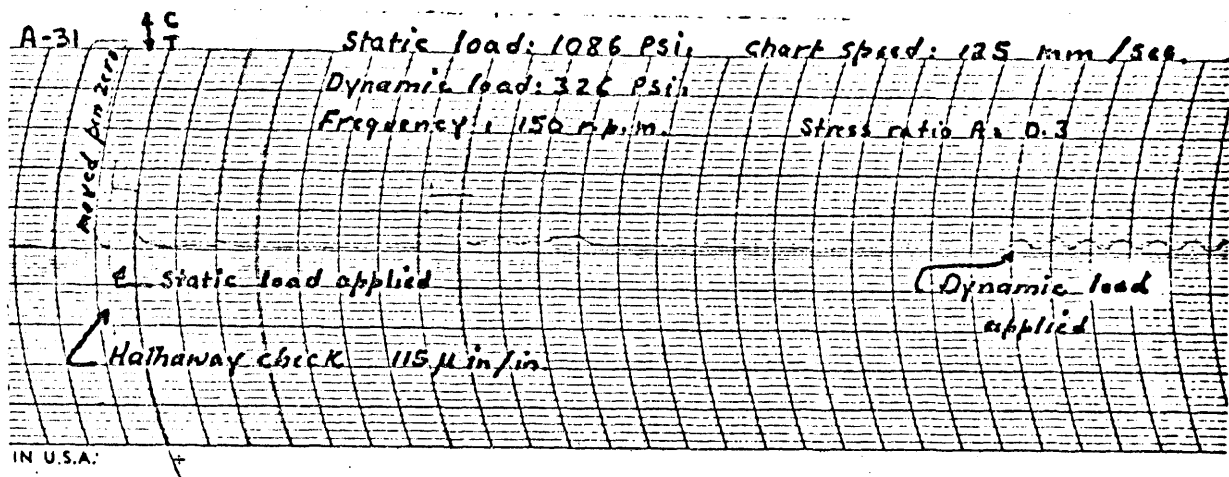 A-31
C
T
Static load: 1086 Psi. Chart speed: 125 mm/sec.
Dynamic load: 326 Psi.
Frequency: 150 r.p.m. Stress ratio A: 0.3
moved pen zero
Static load applied
Dynamic load
applied
Hathaway check 115 μ in/in.
IN U.S.A.